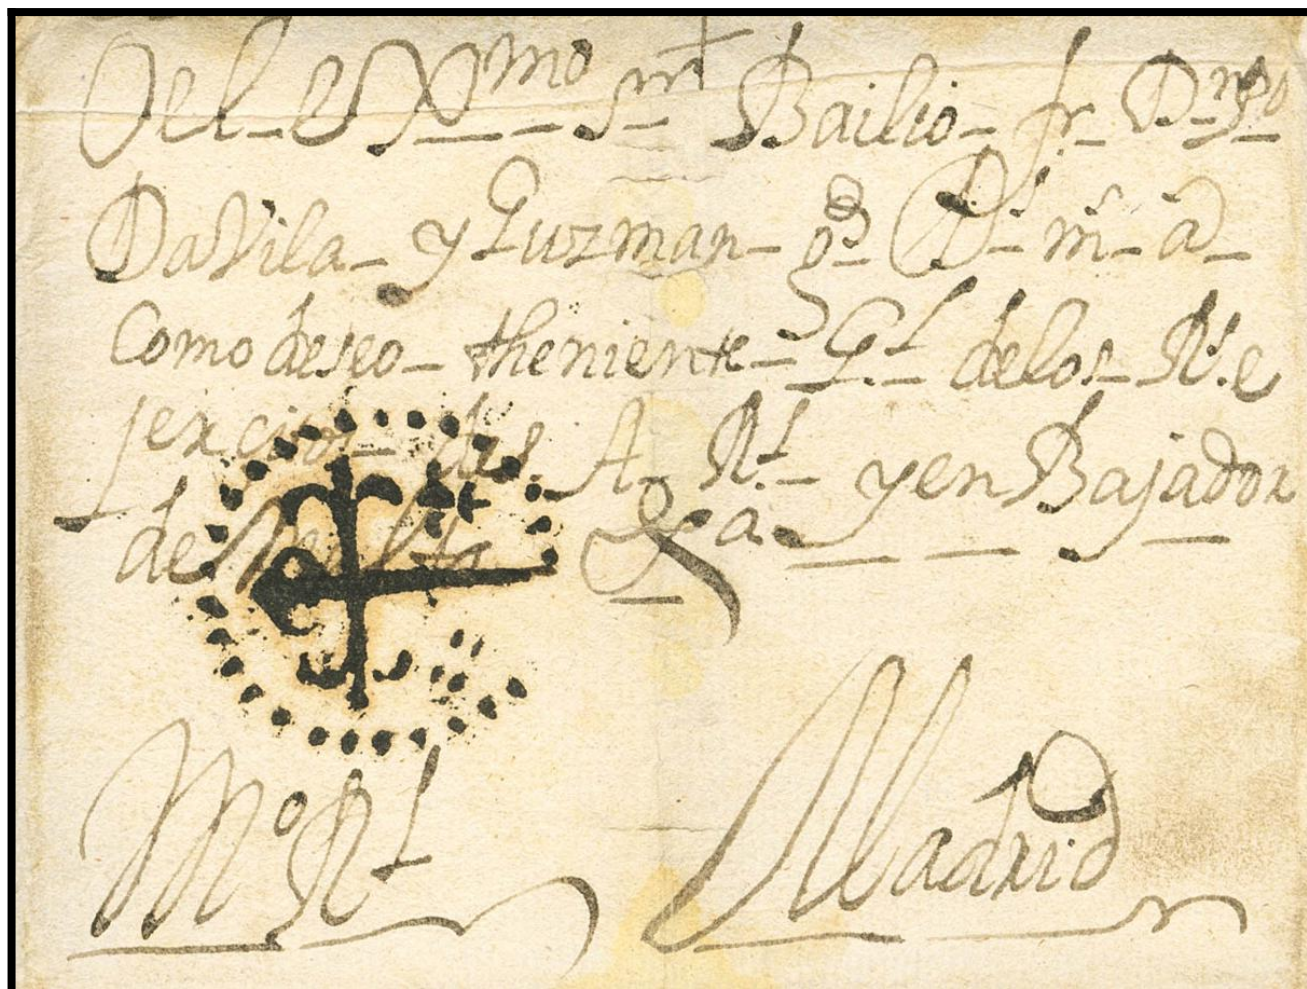 Del_EXmo Sr Bailio_ fr_ Dn
DaVila_ y Guzman_ gd Ds_ ms_ as_
Como deseo_ theniente_ Gl_ delos_ Rs. e
jexcitos_ de S. A_ Rl_ y en Bajador
de Malta &a.
Mo Rl Madrid